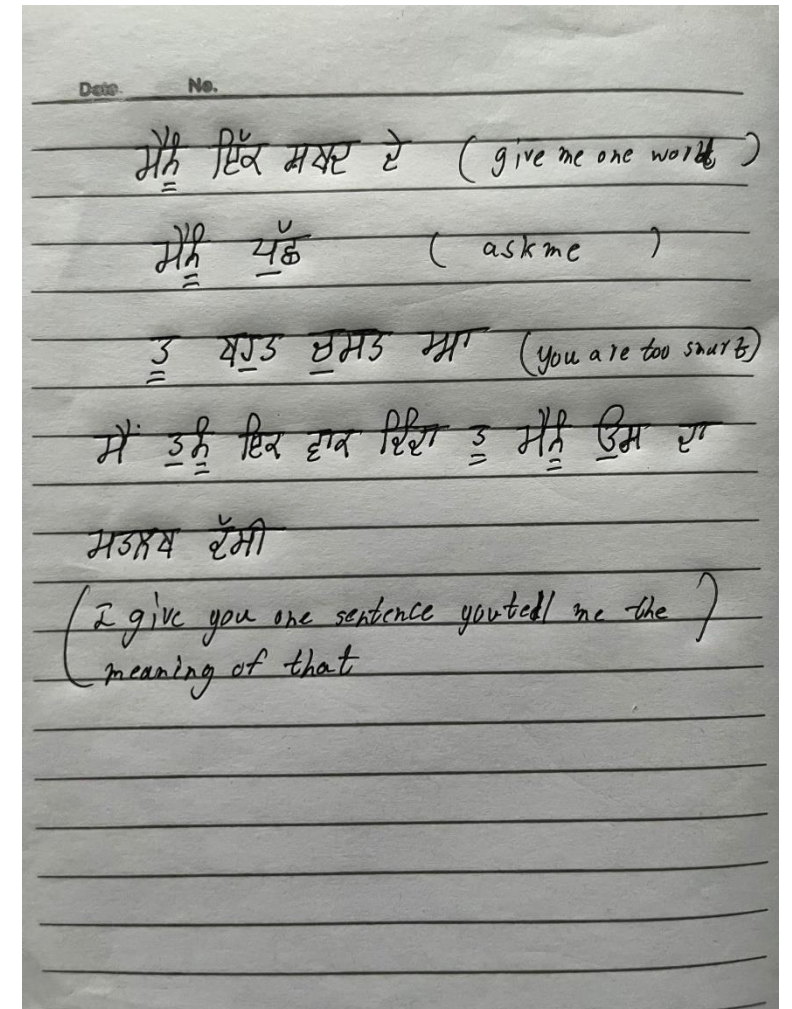 Date. No.
ਮੈਨੂੰ ਇੱਕ ਸਬਦ ਦੇ ( give me one word )
ਮੈਨੂੰ ਪੁੱਛ ( ask me )
ਤੂ ਬਹੁਤ ਚੁਸਤ ਆ (you are too smart)
ਮੈਂ ਤੁਨੂੰ ਇਕ ਵਾਕ ਦਿੰਦਾ ਤੂ ਮੈਨੂੰ ਉਸ ਦਾ
ਮਤਲਬ ਦੱਸੀ
(I give you one sentence you tell me the)
meaning of that